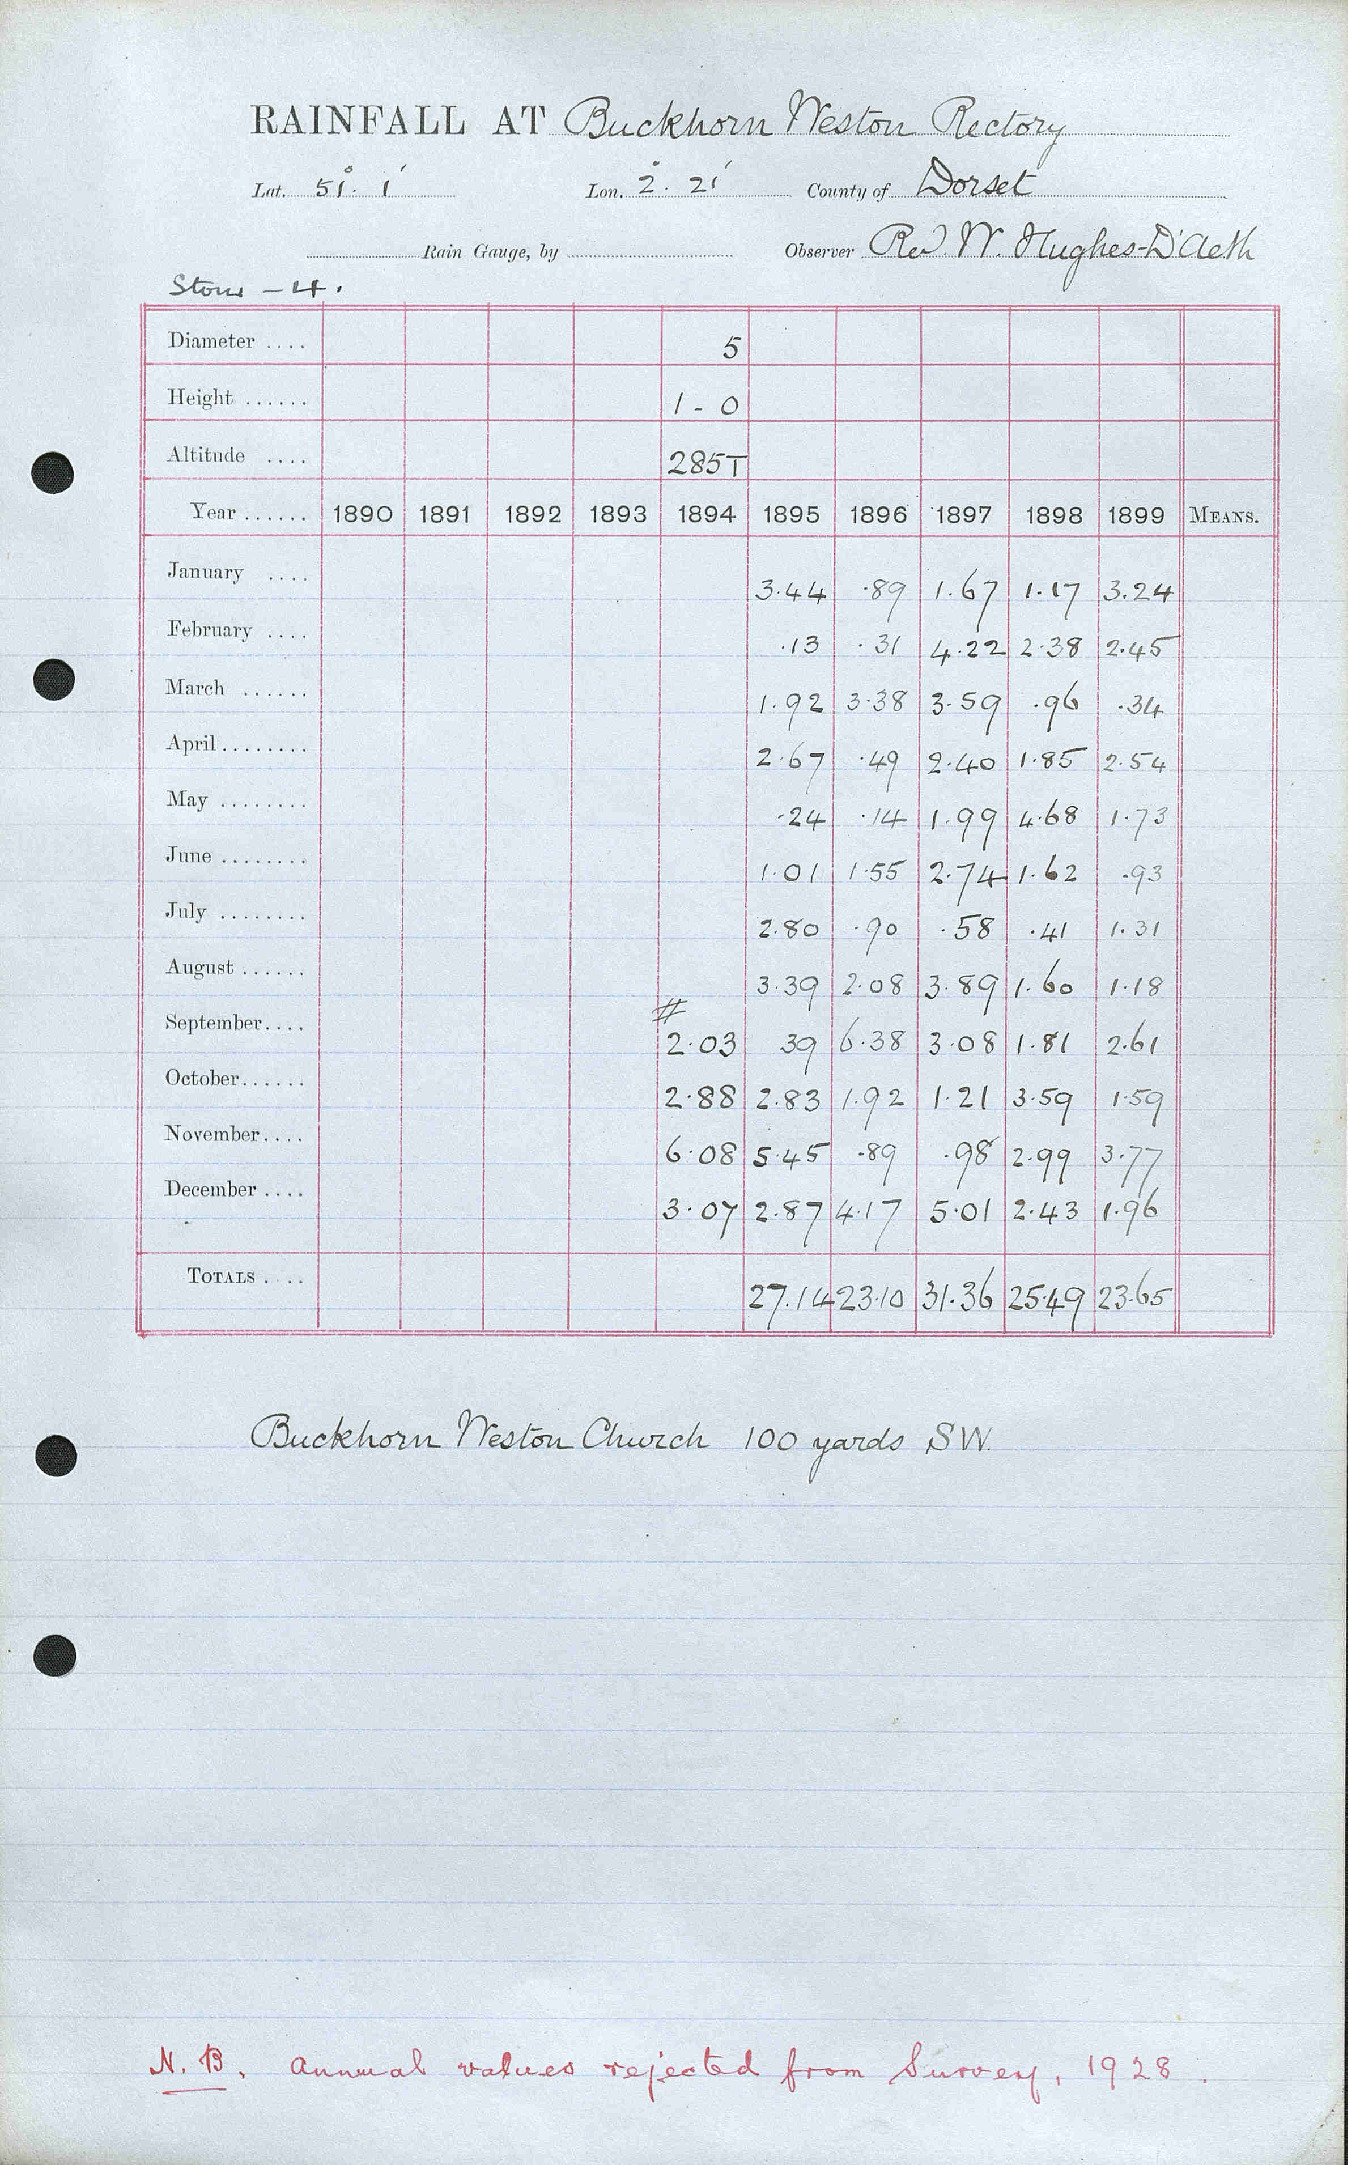 RAINFALL AT Buckhorn Weston Rectory
Lat. 51°. 1′ Lon. 2°. 21′ County of Dorset
Rain Gauge, by Observer Rev. W. Hughes-D'Aeth
Stour - 4.
Diameter .... 5
Height ...... 1 - 0
Altitude .... 285T
Year ...... 1890 1891 1892 1893 1894 1895 1896 1897 1898 1899 MEANS.
January .... 3.44 .89 1.67 1.17 3.24
February .... .13 .31 4.22 2.38 2.45
March ...... 1.92 3.38 3.59 .96 .34
April........ 2.67 .49 2.40 1.85 2.54
May ........ .24 .14 1.99 4.68 1.73
June ........ 1.01 1.55 2.74 1.62 .93
July ........ 2.80 .90 .58 .41 1.31
August ...... 3.39 2.08 3.89 1.60 1.18
#
September.... 2.03 39 6.38 3.08 1.81 2.61
October...... 2.88 2.83 1.92 1.21 3.59 1.59
November.... 6.08 5.45 .89 .98 2.99 3.77
December .... 3.07 2.87 4.17 5.01 2.43 1.96
TOTALS .... 27.14 23.10 31.36 25.49 23.65
Buckhorn Weston Church 100 yards SW.
N.B. Annual values rejected from Survey, 1928.